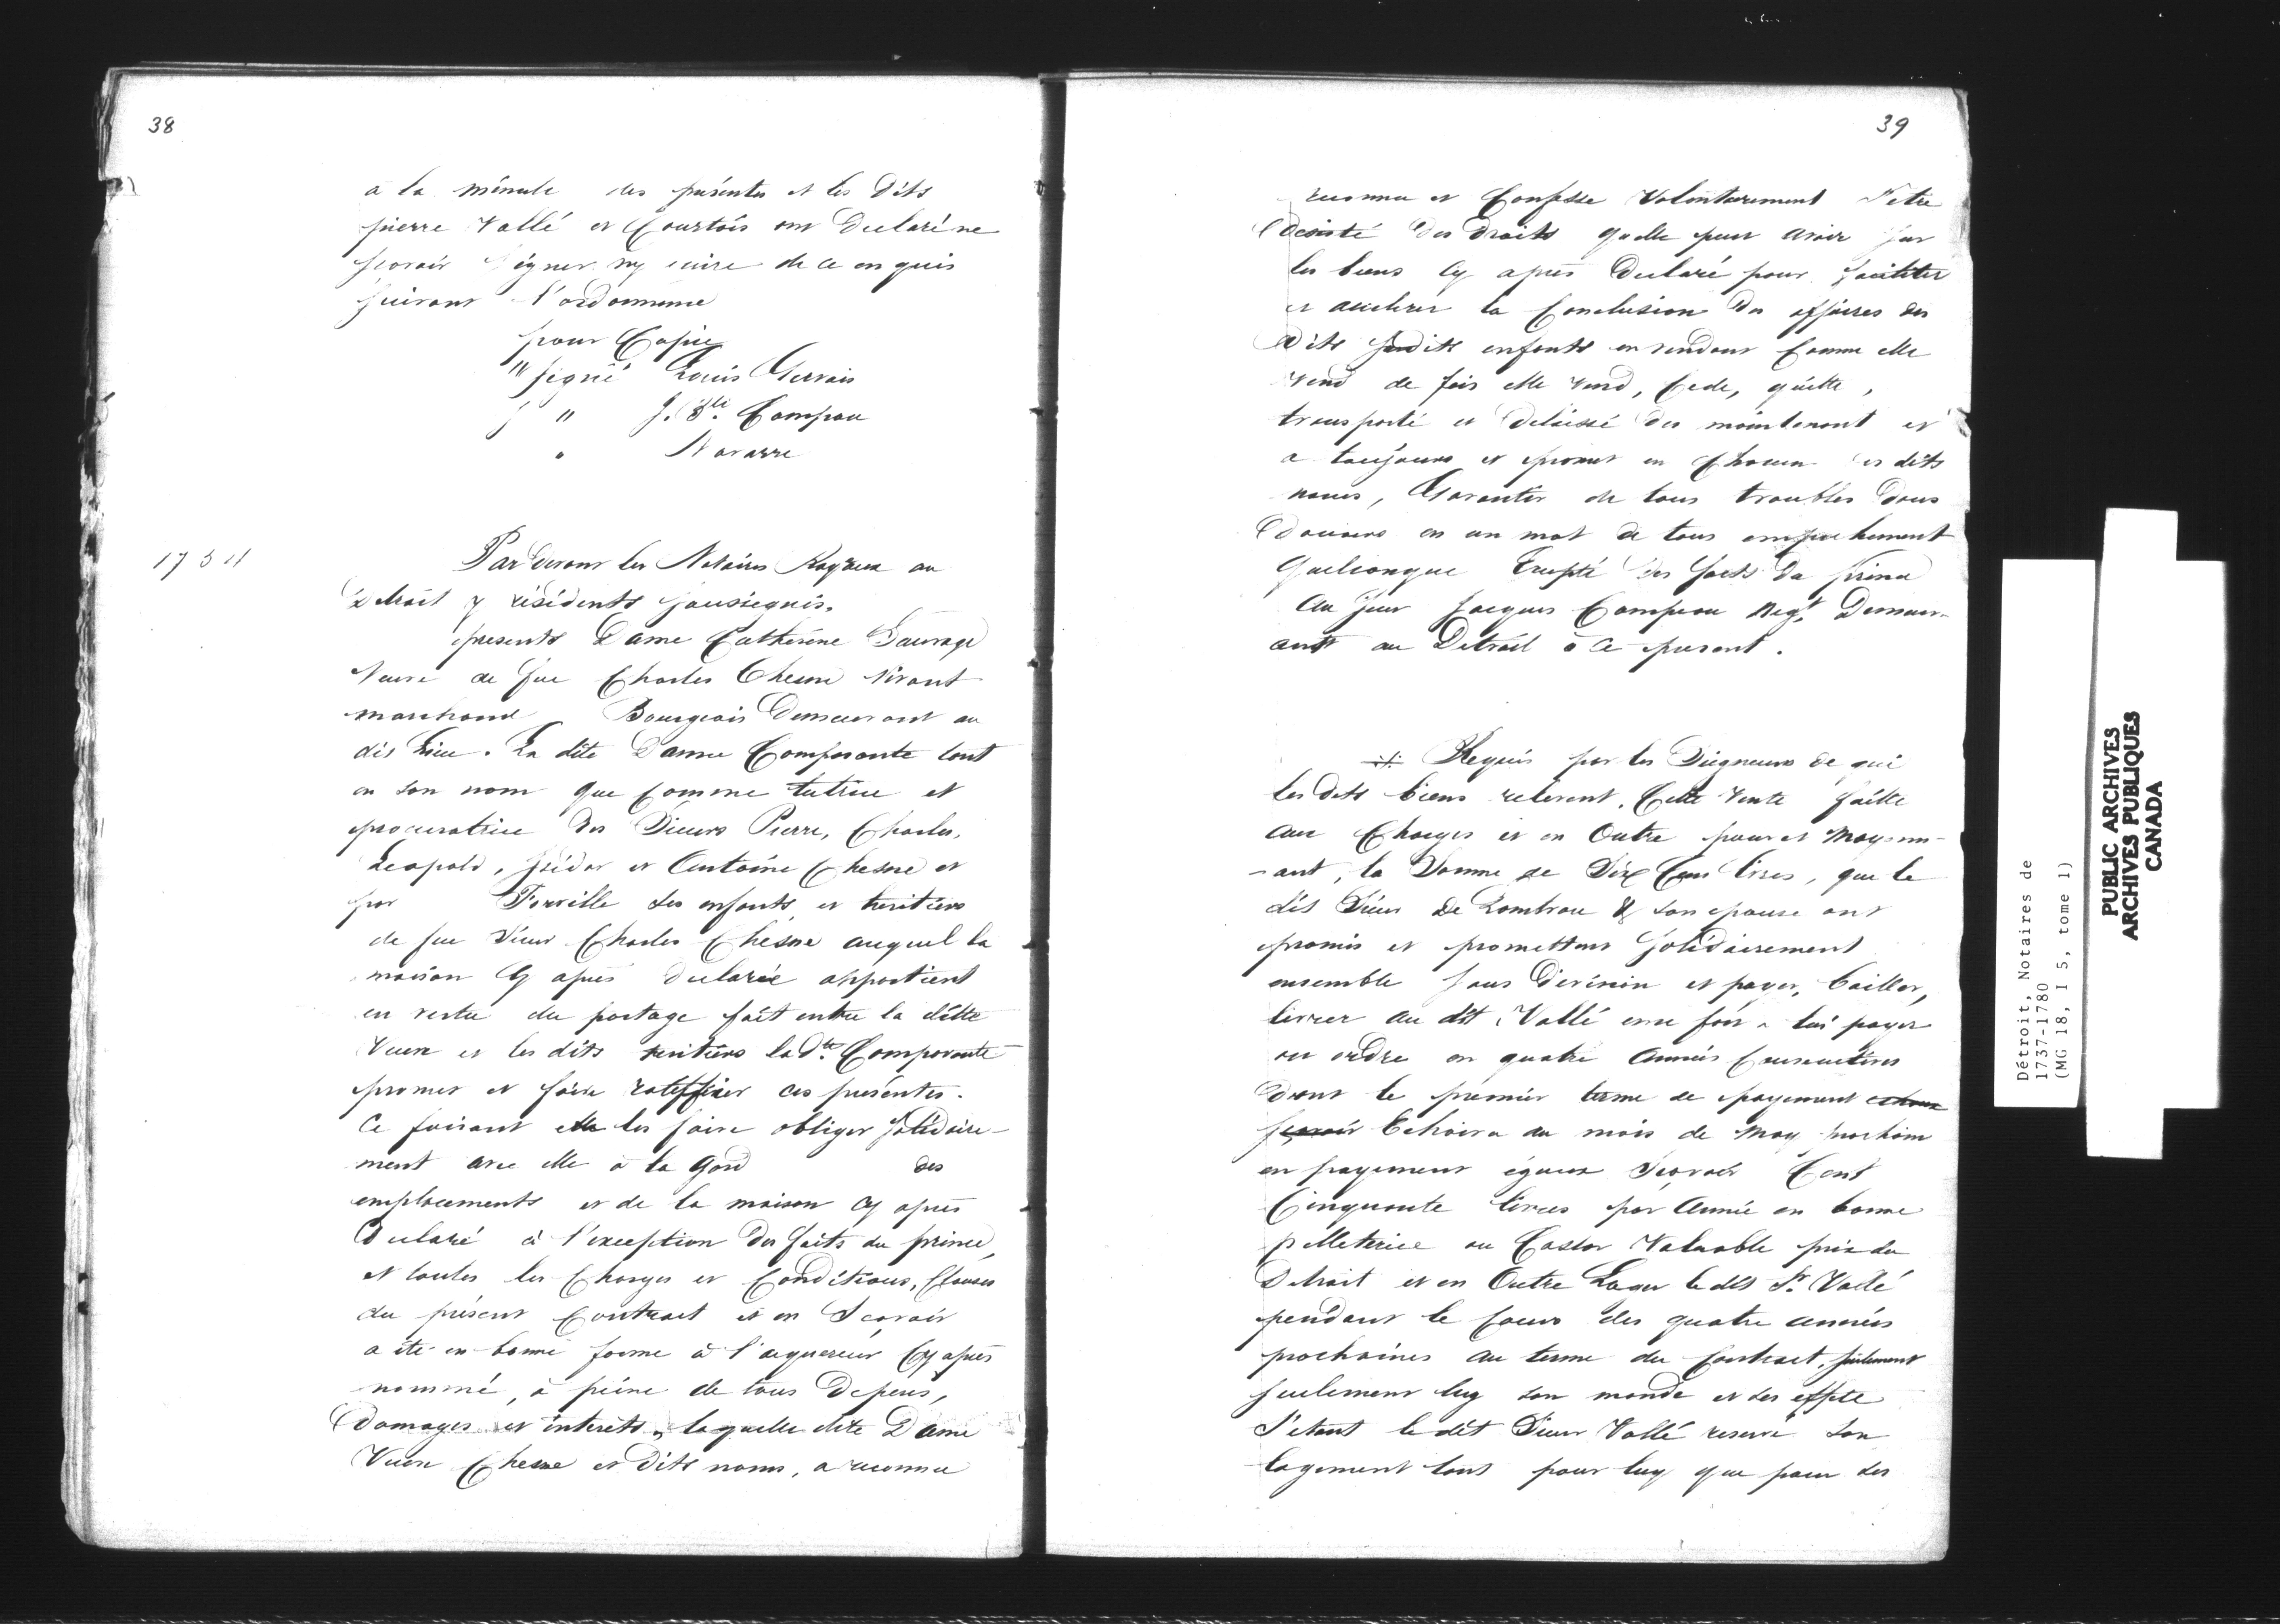 38
à la minute des présentes et les Dits
pierre Vallé et Courtois ont Declaré ne
scavoir signer ny ecrire de ce enquis
suivant l'ordonnance
pour Copie
" signé Louis Gervais
" J. Bte. Campau
" Navarre
Par devant les Notaires Royaux au
Detroit y résidents soussignés.
presents Dame Catherine Sauvage
Veuve de feu Charles Chesne vivant
marchand Bourgeois Demeurant au
dit lieu. La dite Dame Comparante tant
en son nom que comme tutrice et
procuratrice des Sieurs Pierre, Charles,
Leopold, Isidor et Antoine Chesne et
par Torville ses enfants et heritiers
de feu Sieur Charles Chesne auquel la
maison Cy après declarée appartient
en vertu du partage fait entre la ditte
Veuve et les dits heritiers lad.te Comparante
promet et faire ratiffier ces présentes.
Ce faisant elle les faire obliger solidaire-
ment avec elle à la Gard des
emplacements et de la maison cy après
Declaré à l'exception des faits du prince,
et toutes les Charges et Conditions, Clauses
du présent Contract et en Scavoir
a été en bonne forme à l'aquereur Cy après
nommé, à peine de tous Depens,
Domages et interêts, laquelle dite Dame
Veuve Chesne et Dits noms, a reconnu
39
reconnu et Confesse Volontairement s'etre
Desisté des droits quelle peut avoir sur
les biens Cy après Declaré pour faciliter
et accelerer la Conclusion des affaires des
Dits sudits enfants en vendant Comme elle
vend de fois elle vend, Cede, quitte,
transporté et délaissé des maintenant et
a toujours et promet en Chacun es dits
noms, Garantir de tous troubles Dons
Douaires en un mot de tous empechement
Quelconque Excepté des faits du prince
Au Sieur Jacques Campau Negt. Demeur-
ant au Detroit à ce present.
Requis par les Seigneurs de qui
les dits biens relevent. Cette vente faitte
aux Charges et en Outre pour et Moyenn-
-ant, la Somme de Six Cens livres, que le
dit Sieur De Lombrau & son epouse ont
promis et promettent solidairement
ensemble sans Division et payer, bailler,
livrer au dit Vallé une fois a lui payer
ou ordre en quatre Années Consecutives
Dont le premier terme de payement
scavoir Echoira au mois de May prochain
en payement égaux Scavoir Cent
Cinquante livres par Année en bonne
pelleterie ou Castor Valuable prix du
Detroit et en Outre Loger le dit Sr. Vallé
pendant le Cours des quatre années
prochaines au terme du Contract, seulement
seulement luy son monde et ses effets
S'etant le dit Sieur Vallé reservé son
logement tant pour luy que pour ses
Détroit, Notaires de
1737-1780
(MG 18, I 5, tome 1)
PUBLIC ARCHIVES
ARCHIVES PUBLIQUES
CANADA